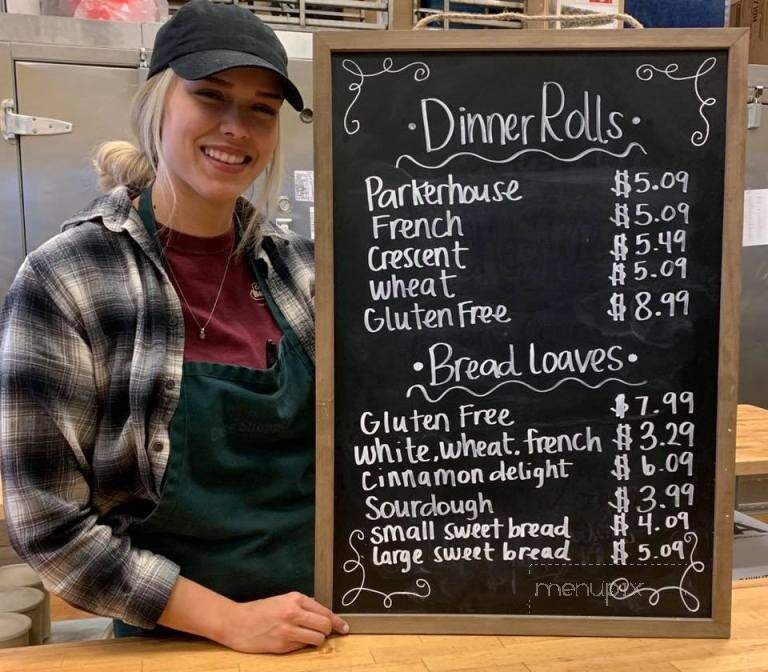 · Dinner Rolls ·
Parkerhouse $5.09
French $5.09
Crescent $5.49
wheat $5.09
Gluten Free $8.99
· Bread loaves ·
Gluten Free $7.99
white, wheat, french $3.29
cinnamon delight $6.09
Sourdough $3.99
small sweet bread $4.09
large sweet bread $5.09
menupix